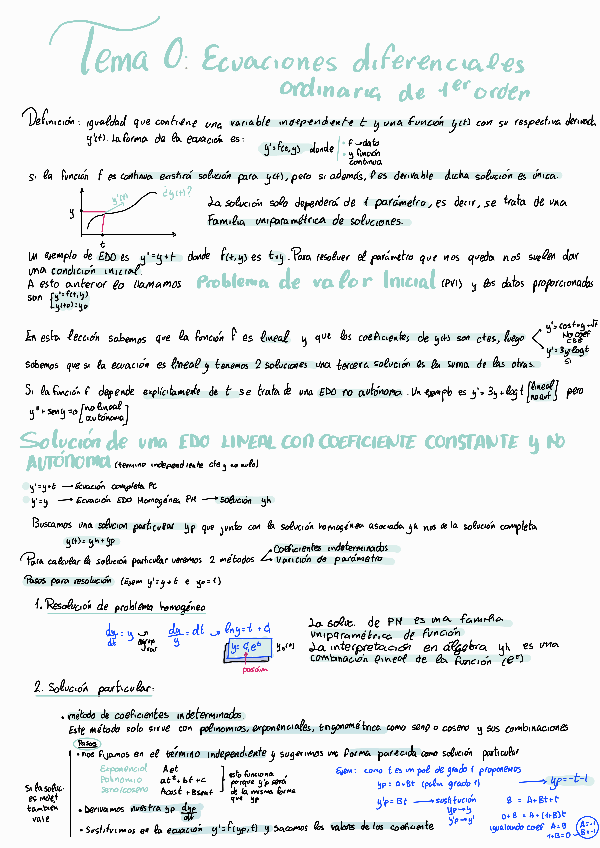 Tema 0: Ecuaciones diferenciales
ordinaria de 1er order
Definición: igualdad que contiene una variable independiente t y una función y(t) con su respectiva derivada
y'(t). La forma de la ecuación es:
y'=f(t,y) donde
· f → dato
· y función
continua
Si la función f es continua existirá solución para y(t), pero si además, f es derivable dicha solución es única.
y
y'(t)
¿y(t)?
t
La solución solo dependerá de 1 parámetro, es decir, se trata de una
Familia uniparamétrica de soluciones.
Un ejemplo de EDO es y'=y+t donde f(t,y) es t+y. Para resolver el parámetro que nos queda nos suelen dar
una condición inicial.
A esto anterior lo llamamos Problema de valor Inicial (PVI) y los datos proporcionados
son [y'=f(t,y)
y(t0)=y0
En esta lección sabemos que la función f es lineal y que los coeficientes de y(t) son ctes, luego
y'=cost+y-
No coef
cte
y'=3y+logt
si
Sabemos que si la ecuación es lineal y tenemos 2 soluciones una tercera solución es la suma de las otras.
Si la función f depende explícitamente de t se trata de una EDO no autónoma. Un ejemplo es y'=3y+logt [lineal
no aut] pero
y''+seny=0 [no lineal
autónoma]
Solución de una EDO LINEAL CON COEFICIENTE CONSTANTE y NO
AUTÓNOMA (termino independiente cte y no nulo)
y'=y+t → Ecuación completa PC
y'=y → Ecuación EDO Homogénea PH → solución yh
Buscamos una solucion particular yp que junto con la solución homogénea asociada yh nos de la solución completa
y(t)= yh+yp
Para calcular la solución particular veremos 2 métodos
Coeficientes indeterminados
Varición de parámetro
Pasos para resolución (Ejem y'=y+t e y0=1)
1. Resolución de problema homogéneo
dy/dt = y → dy/y = dt → lny=t+C1
y= C1e^t
La soluc. de PH es una familia
uniparamétrica de función
La interpretación en álgebra yh es una
combinación lineal de la función (e^t)
2. Solución particular:
· método de coeficientes indeterminados
Este método solo sirve con polinomios, exponenciales, trigonométrica como seno o coseno y sus combinaciones
Pasos
· nos fijamos en el término independiente y sugerimos una forma parecida como solución particular
Exponencial Aet
Polinomio at²+bt+c
seno/coseno Acost+Bsent
esto funciona
porque yp será
de la misma forma
que yp
Si la soluc.
es indet
tambien
vale
Ejem: como t es un pol de grado 1 proponemos
yp = A+Bt (polin grado 1)
yp=-t-1
y'p=Bt → sustitución
yp→y
y'p→y'
B = A+Bt+t
0+B = A+(1+B)t
igualando coef A=B
1+B=0
A=-1
B=-1
· Derivamos nuestra yp dyp/dt
· Sustituimos en la ecuación y'=f(yp,t) y sacamos los valores de los coeficiente